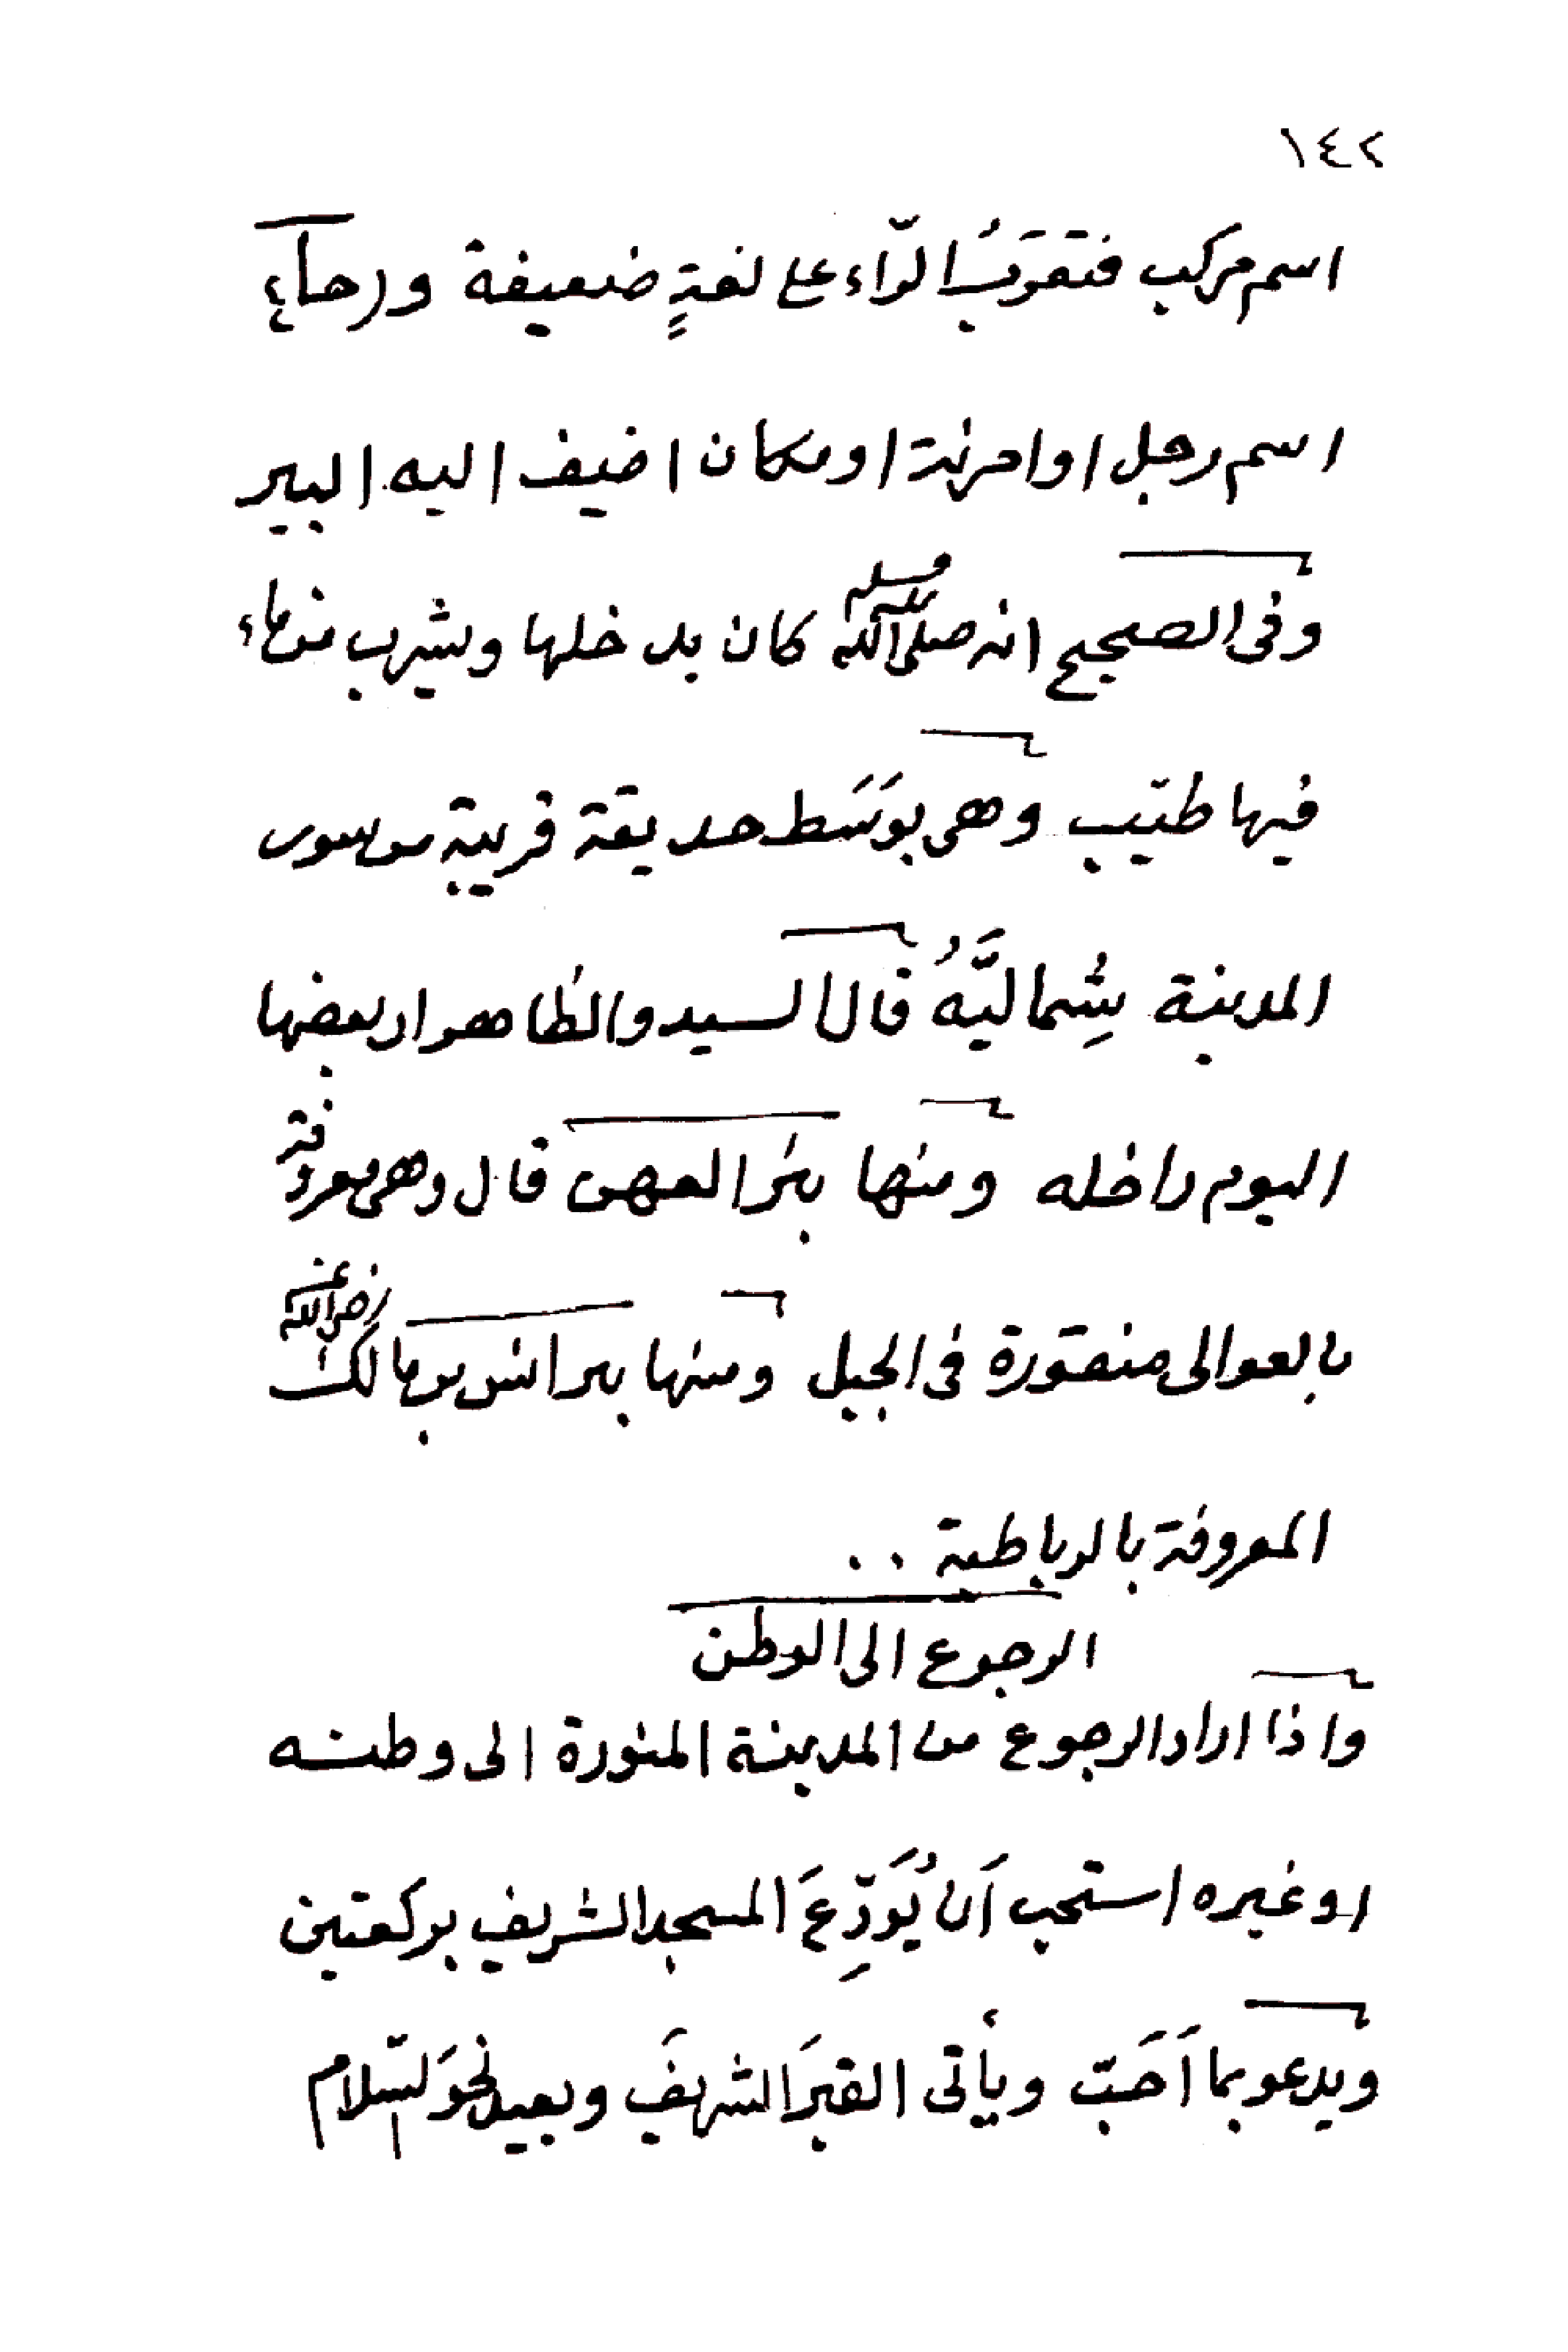 ١٤٢
اسم مركب فتعرَبُ الرّاء على لغةٍ ضعيفة و(حاء)
اسم رجل او امرئة او مكان اضيف اليه البير
وفى الصحيح انه صلى الله عليه وسلم كان يدخلها ويشرب من ماء
فيها طيّب وهى بوَسَط حديقة قريبة من سور
المدينة شِماليَّهُ قال السيد والظاهر ان بعضها
اليوم داخله ومنها بئر العهن قال وهى معروفة
بالعوالى منقورة فى الجبل ومنها بير انس بن مالك رضى الله عنه
المعروفة بالرباطية ..
الرجوع الى الوطن
واذا اراد الرجوع من المدينة المنورة الى وطنه
او غيره استحب اَن يُوَدِّعَ المسجد الشريف بركعتين
ويدعو بما اَحَبّ ويأتى القبرَ الشريفَ ويعيد نحوَ السّلام